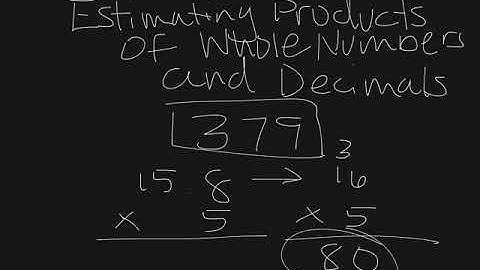 Estimating Products
of Whole Numbers
and Decimals
379
3
15 8 → 16
x 5 x 5
80